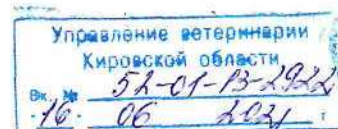 Управление ветеринарии
Кировской области
Вх. № 52-01-13-2922
"16" 06 2021 г